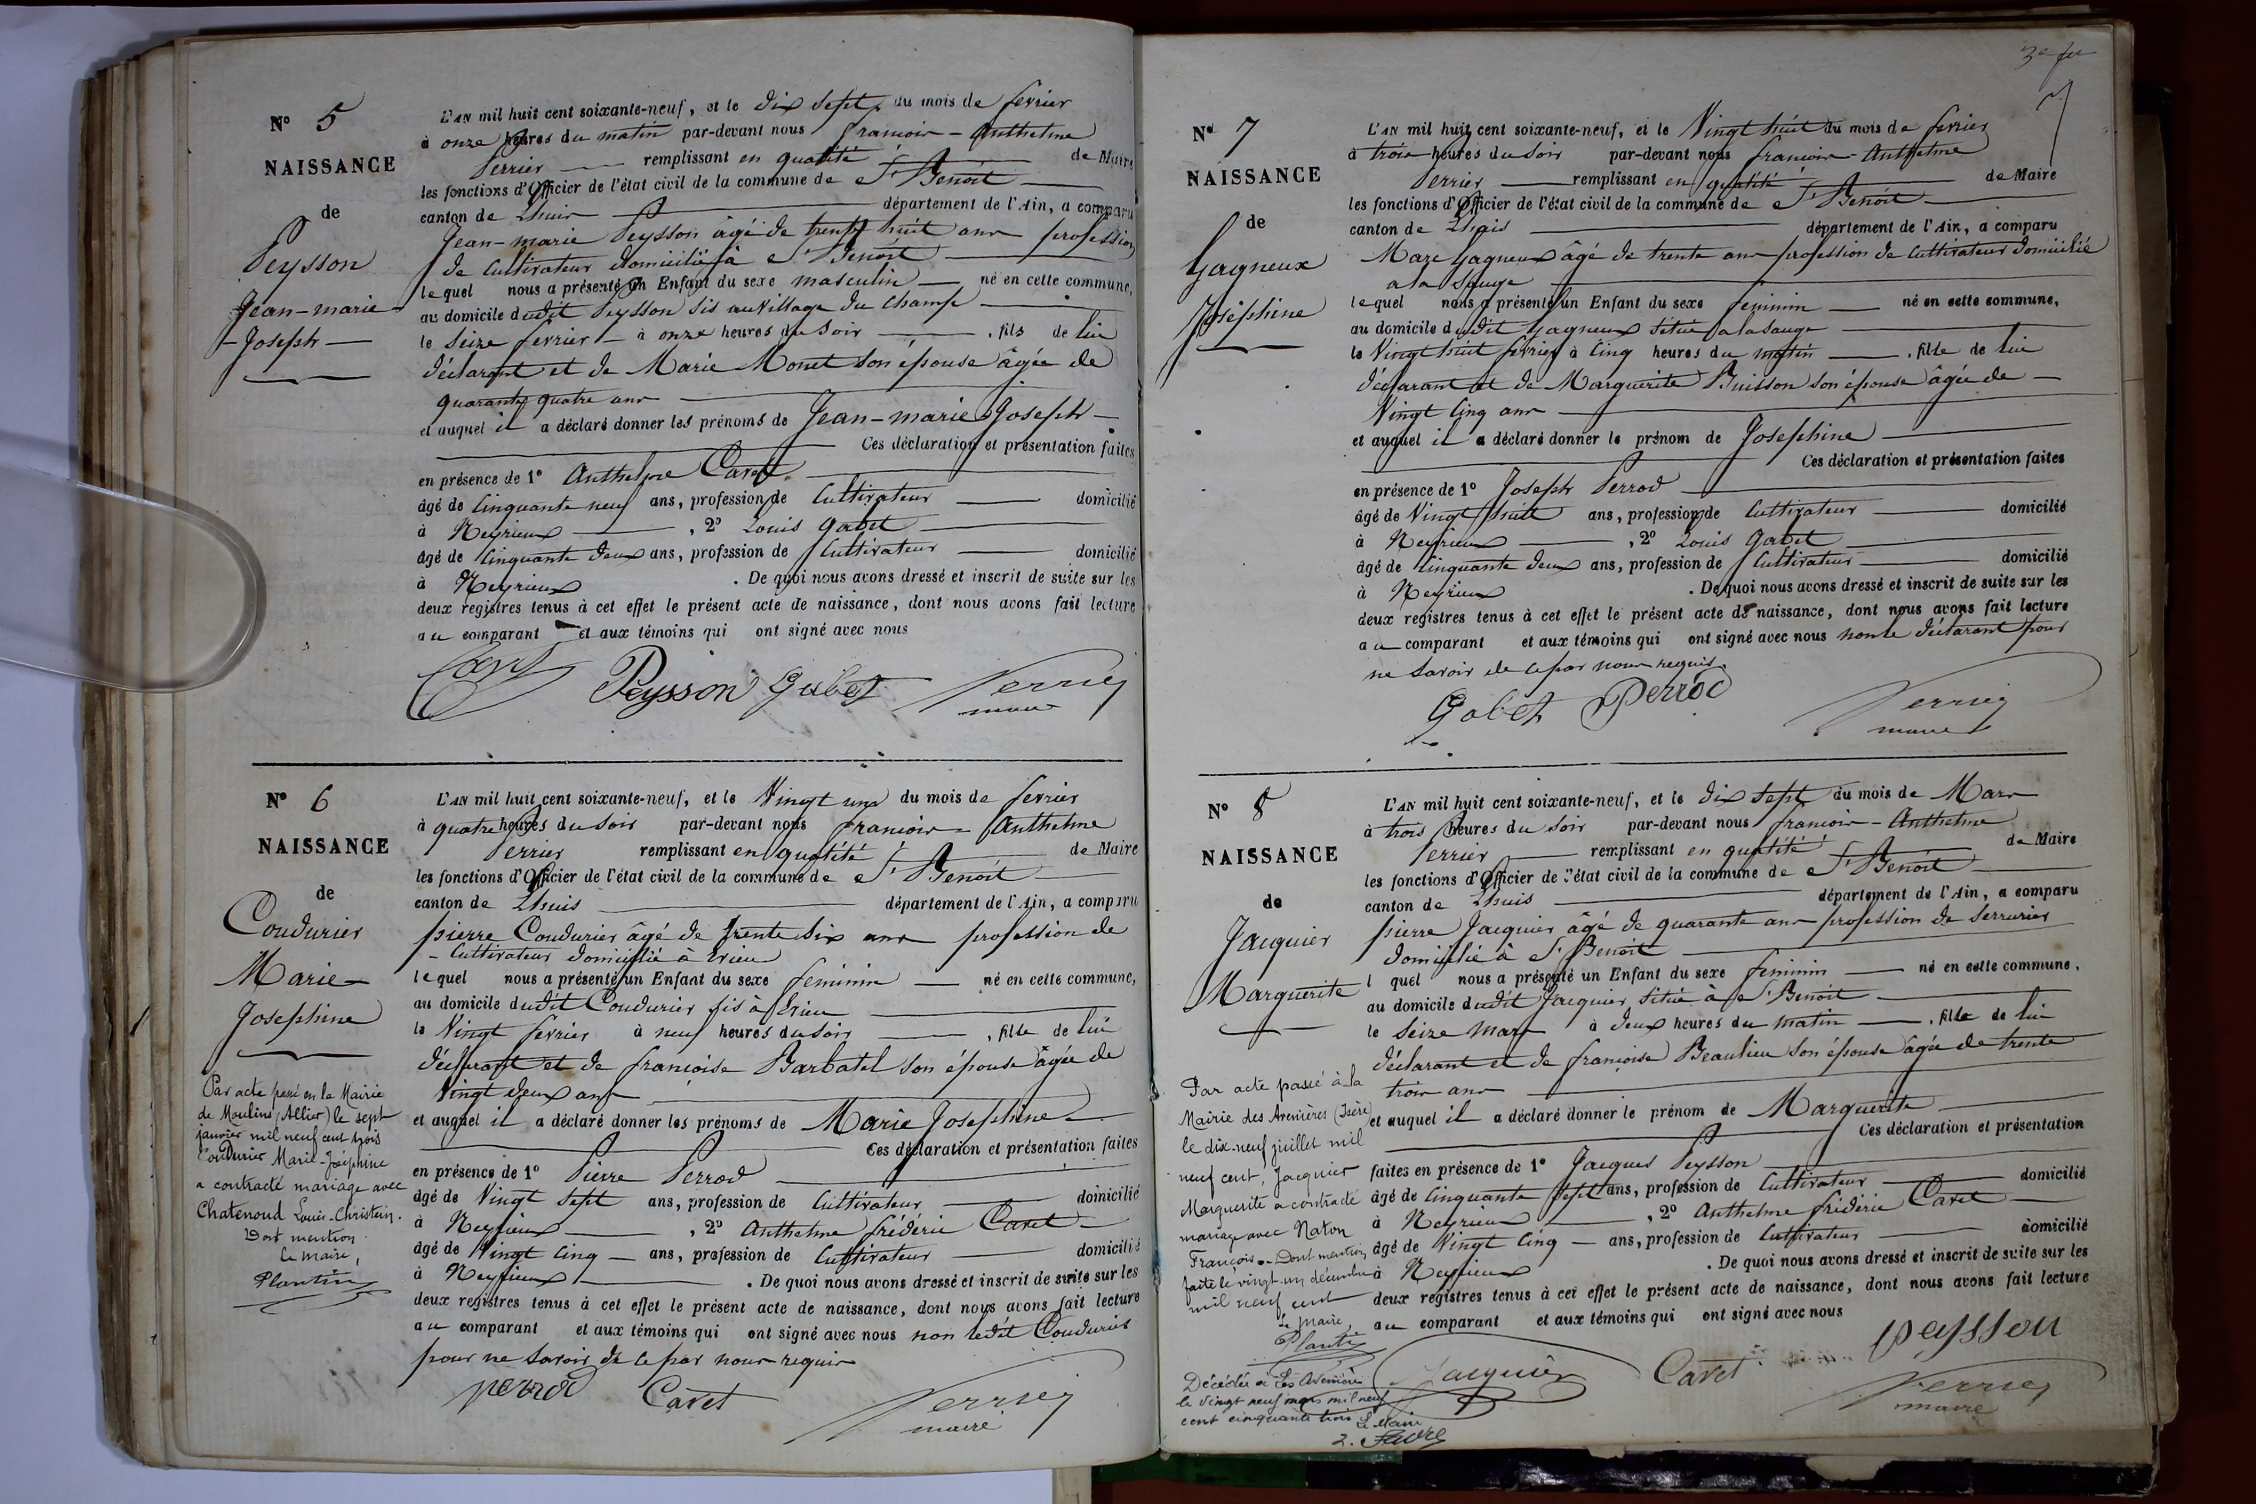 N° 5
NAISSANCE
de
Peysson
Jean-marie
Joseph
L'AN mil huit cent soixante-neuf, et le dix sept du mois de fevrier
à onze heures du matin par-devant nous francois-Anthelme
Perrier remplissant en qualité de Maire
les fonctions d'Officier de l'état civil de la commune de St Benoit
canton de Lhuis département de l'Ain, a comparu
Jean-marie Peysson âgé de trente huit ans profession
de Cultivateur domicilié à St Benoit
lequel nous a présenté un Enfant du sexe masculin né en cette commune,
au domicile dudit Peysson sis au Village du Champ
le Seize fevrier à onze heures du soir , fils de lui
déclarant et de Marie Monet son épouse âgée de
quarante quatre ans
et auquel il a déclaré donner les prénoms de Jean-marie Joseph
Ces déclaration et présentation faites
en présence de 1° Anthelme Caret
âgé de Cinquante neuf ans, profession de Cultivateur domicilié
à Neyrieux , 2° Louis Gabet
âgé de Cinquante deux ans, profession de Cultivateur domicilié
à Neyrieux . De quoi nous avons dressé et inscrit de suite sur les
deux registres tenus à cet effet le présent acte de naissance, dont nous avons fait lecture
au comparant et aux témoins qui ont signé avec nous
Peysson Gabet Perrier
maire
N° 6
NAISSANCE
de
Coudurier
Marie
Josephine
L'AN mil huit cent soixante-neuf, et le Vingt un du mois de fevrier
à quatre heures du soir par-devant nous francois-Anthelme
Perrier remplissant en qualité de Maire
les fonctions d'Officier de l'état civil de la commune de St Benoit
canton de Lhuis département de l'Ain, a comparu
pierre Coudurier âgé de trente six ans profession de
Cultivateur domicilié à Erieu
lequel nous a présenté un Enfant du sexe feminin né en cette commune,
au domicile dudit Coudurier sis à Erieu
le Vingt fevrier à neuf heures du soir , fille de lui
déclarant et de françoise Barbatel son épouse âgée de
Vingt deux ans
et auquel il a déclaré donner les prénoms de Marie Josephine
Ces déclaration et présentation faites
en présence de 1° Pierre Perrod
âgé de Vingt sept ans, profession de Cultivateur domicilié
à Neyrieux , 2° Anthelme frédéric Caret
âgé de Vingt cinq ans, profession de Cultivateur domicilié
à Neyrieux . De quoi nous avons dressé et inscrit de suite sur les
deux registres tenus à cet effet le présent acte de naissance, dont nous avons fait lecture
au comparant et aux témoins qui ont signé avec nous non ledit Coudurier
pour ne savoir de ce par nous requis
perrod Caret Perrier
maire
Par acte passé en la Mairie
de Moulins (Allier) le sept
janvier mil neuf cent trois
Coudurier Marie-Joséphine
a contracté mariage avec
Chatenoud Louis-Christein.
Dont mention
Le maire,
Plantin
3e fe
N° 7
NAISSANCE
de
Gagneux
Joséphine
L'AN mil huit cent soixante-neuf, et le Vingt huit du mois de fevrier
à trois heures du soir par-devant nous francois-Anthelme
Perrier remplissant en qualité de Maire
les fonctions d'Officier de l'état civil de la commune de St Benoit
canton de Lhuis département de l'Ain, a comparu
Marc Gagneux âgé de trente ans profession de Cultivateur domicilié
a la Sauge
lequel nous a présenté un Enfant du sexe feminin né en cette commune,
au domicile dudit Gagneux situé a la Sauge
le Vingt huit fevrier à cinq heures du matin , fille de lui
déclarant et de Marguerite Buisson son épouse âgée de
Vingt cinq ans
et auquel il a déclaré donner le prénom de Josephine
Ces déclaration et présentation faites
en présence de 1° Joseph Perrod
âgé de Vingt huit ans, profession de Cultivateur domicilié
à Neyrieux , 2° Louis Gabet
âgé de Cinquante deux ans, profession de Cultivateur domicilié
à Neyrieux . De quoi nous avons dressé et inscrit de suite sur les
deux registres tenus à cet effet le présent acte de naissance, dont nous avons fait lecture
au comparant et aux témoins qui ont signé avec nous non le déclarant pour
ne savoir de ce par nous requis
Gabet Perrod Perrier
maire
N° 8
NAISSANCE
de
Jacquier
Marguerite
L'AN mil huit cent soixante-neuf, et le dix sept du mois de Mars
à trois heures du soir par-devant nous francois-Anthelme
Perrier remplissant en qualité de Maire
les fonctions d'Officier de l'état civil de la commune de St Benoit
canton de Lhuis département de l'Ain, a comparu
pierre Jacquier âgé de quarante ans profession de Serrurier
domicilié à St Benoit
l quel nous a présenté un Enfant du sexe feminin né en cette commune,
au domicile dudit Jacquier situé à St Benoit
le Seize mars à deux heures du matin , fille de lui
déclarant et de françoise Beaulieu son épouse âgée de trente
trois ans
et auquel il a déclaré donner le prénom de Marguerite
Ces déclaration et présentation
faites en présence de 1° Jacques Peysson
âgé de Cinquante sept ans, profession de Cultivateur domicilié
à Neyrieux , 2° Anthelme frédéric Caret
âgé de Vingt cinq ans, profession de Cultivateur domicilié
à Neyrieux . De quoi nous avons dressé et inscrit de suite sur les
deux registres tenus à cet effet le présent acte de naissance, dont nous avons fait lecture
au comparant et aux témoins qui ont signé avec nous
peysson
Jacquier Caret Perrier
maire
Par acte passé à la
Mairie des Avenières (Isère)
le dix-neuf juillet mil
neuf cent, Jacquier
Marguerite a contracté
mariage avec Naton
François. Dont mention
faite le vingt-un décembre
mil neuf cent
Le Maire,
Plantin
Décédée à Les Avenières
le vingt neuf mars mil neuf
cent cinquante trois
Le Maire
L. Favre